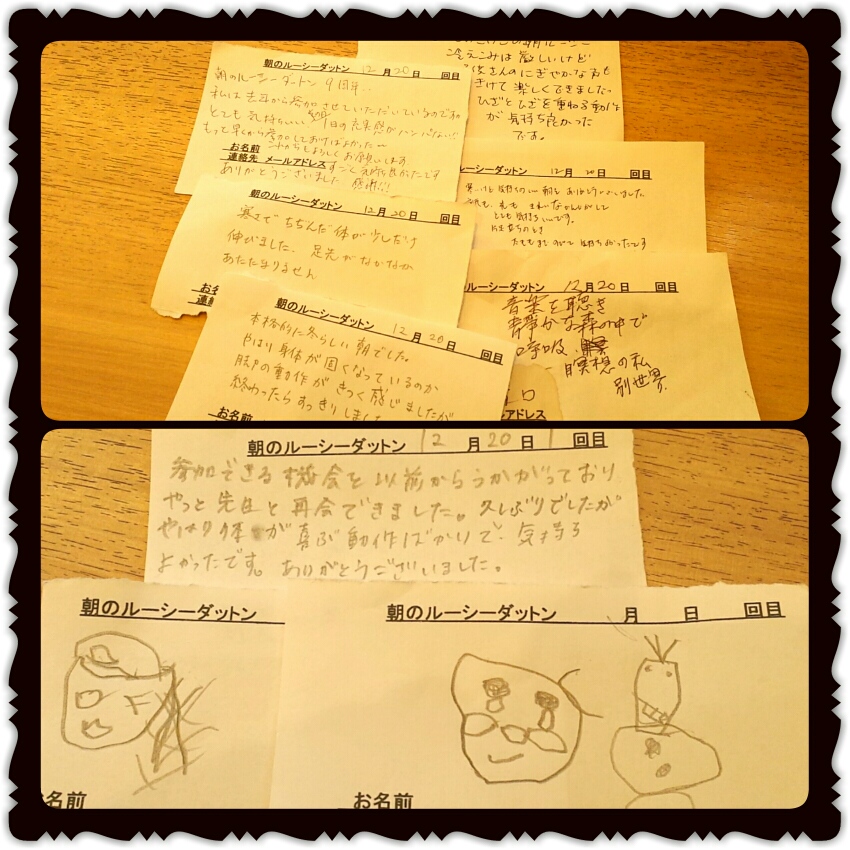 朝のルーシーダットン 12月20日 回目
朝のルーシーダットン 9周年、、
私は去年から参加させていただいているのですが
とても気持ちいい 1日の充実感がハンパない!!
もって早くから参加しておけばよかった〜
お名前 これからもよろしくお願いします
連絡先 メールアドレス すごく気持ち良かったです
ありがとうございました 感謝!!!
冷えこみは厳しいけど
さんのにぎやかな声も
きけて楽しくできました
ひざとひざを重ねる動作
が気持ち良かった
です。
ルーシーダットン 12月20日 回目
朝をありがとうございました
とても気持ちいいです。
朝のルーシーダットン 12月20日 回目
寒さでちぢんだ体が少しだけ
伸びました。足先がなかなか
あたたまりません
お名
連絡
ルーシーダットン 12月20日 回目
音楽を聴き
静かな森の中で
呼吸
瞑想の私
別世界
ルアドレス
朝のルーシーダットン 12月20日 回目
本格的に冬らしい朝でした。
やはり身体が固くなっているのか
の動作がきつく感じましたが
終わったらすっきりしました
お名前
朝のルーシーダットン 12月20日 1回目
参加できる機会を以前からうかがっており
やっと先生と再会できました。久しぶりでしたが
やはり体が喜ぶ動作ばかりで、気持ち
よかったです。ありがとうございました。
朝のルーシーダットン
お名前
朝のルーシーダットン 月 日 回目
お名前